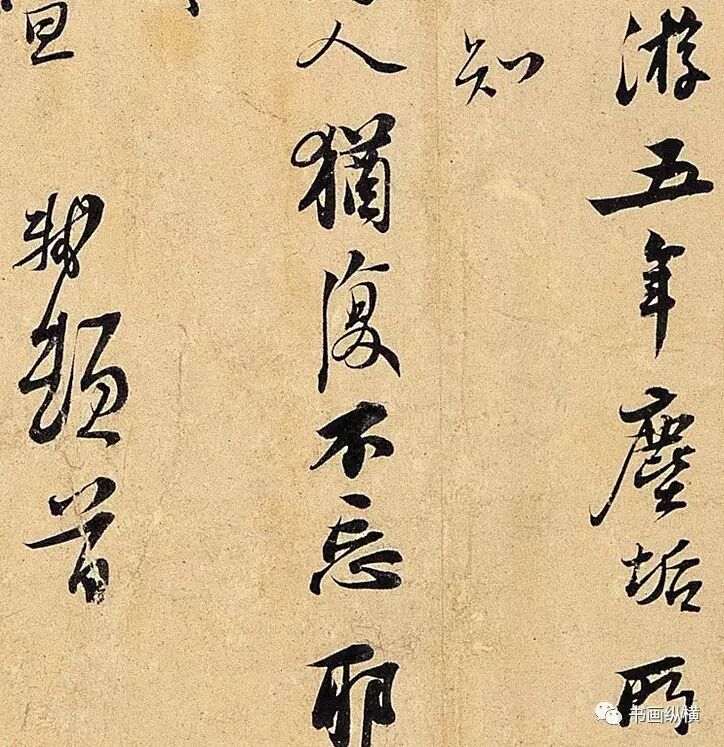 游五年塵垢所
知
人猶復不忘耶
宣 軾頓首
书画纵横